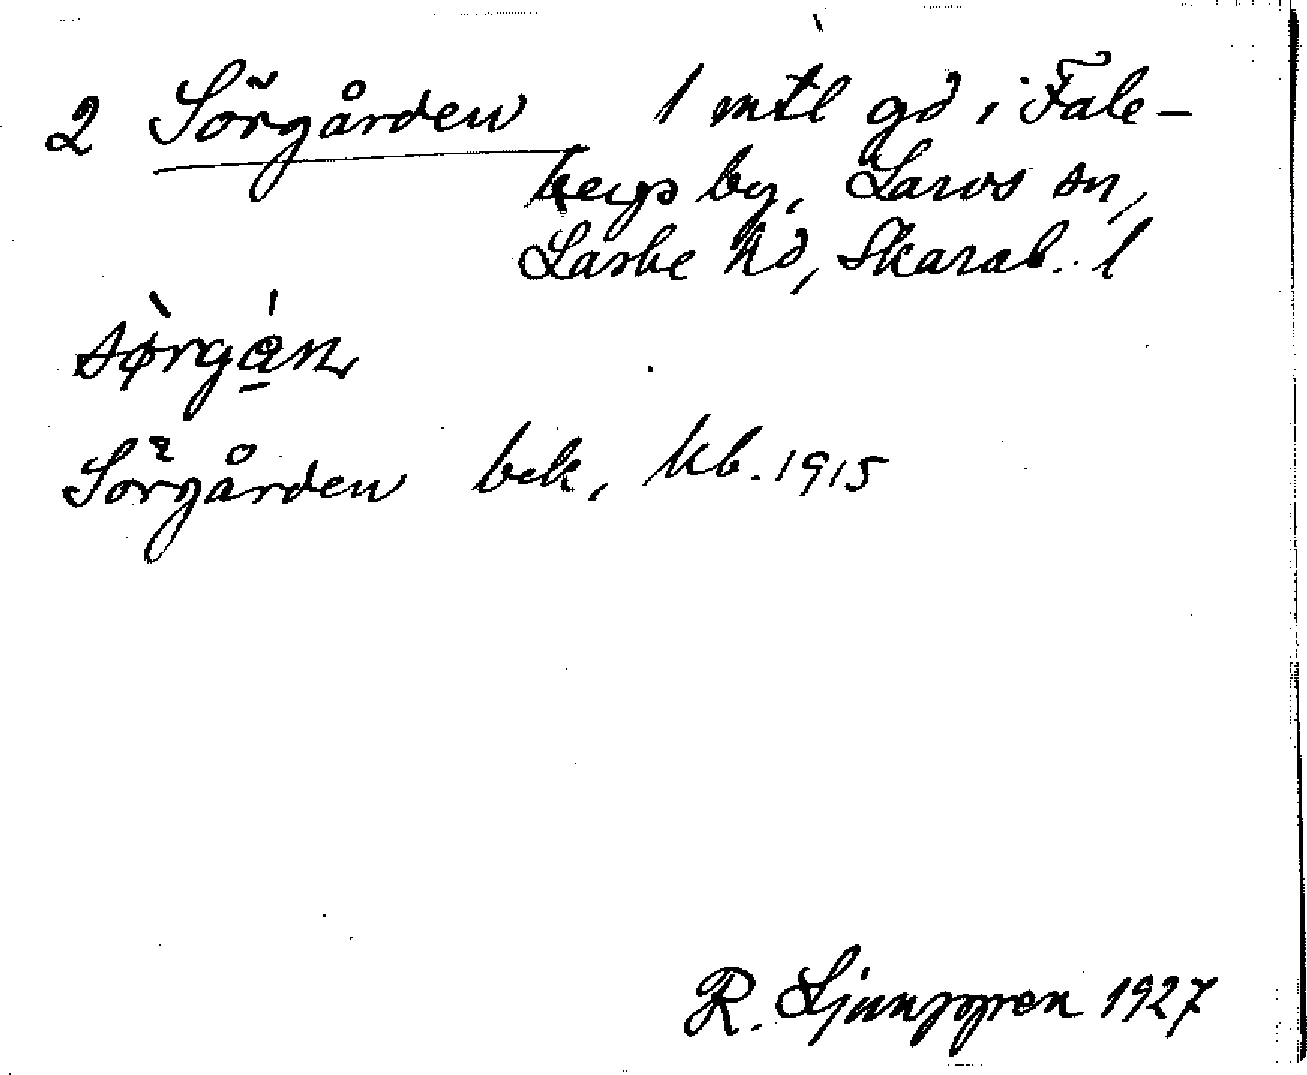 2 Sörgården 1 mtl gd i Fale-
bergs by, Larvs sn,
Laske hd, Skarab. l
sø̀rgá̱n
Sörgården bek, kb. 1915
R. Ljunggren 1927